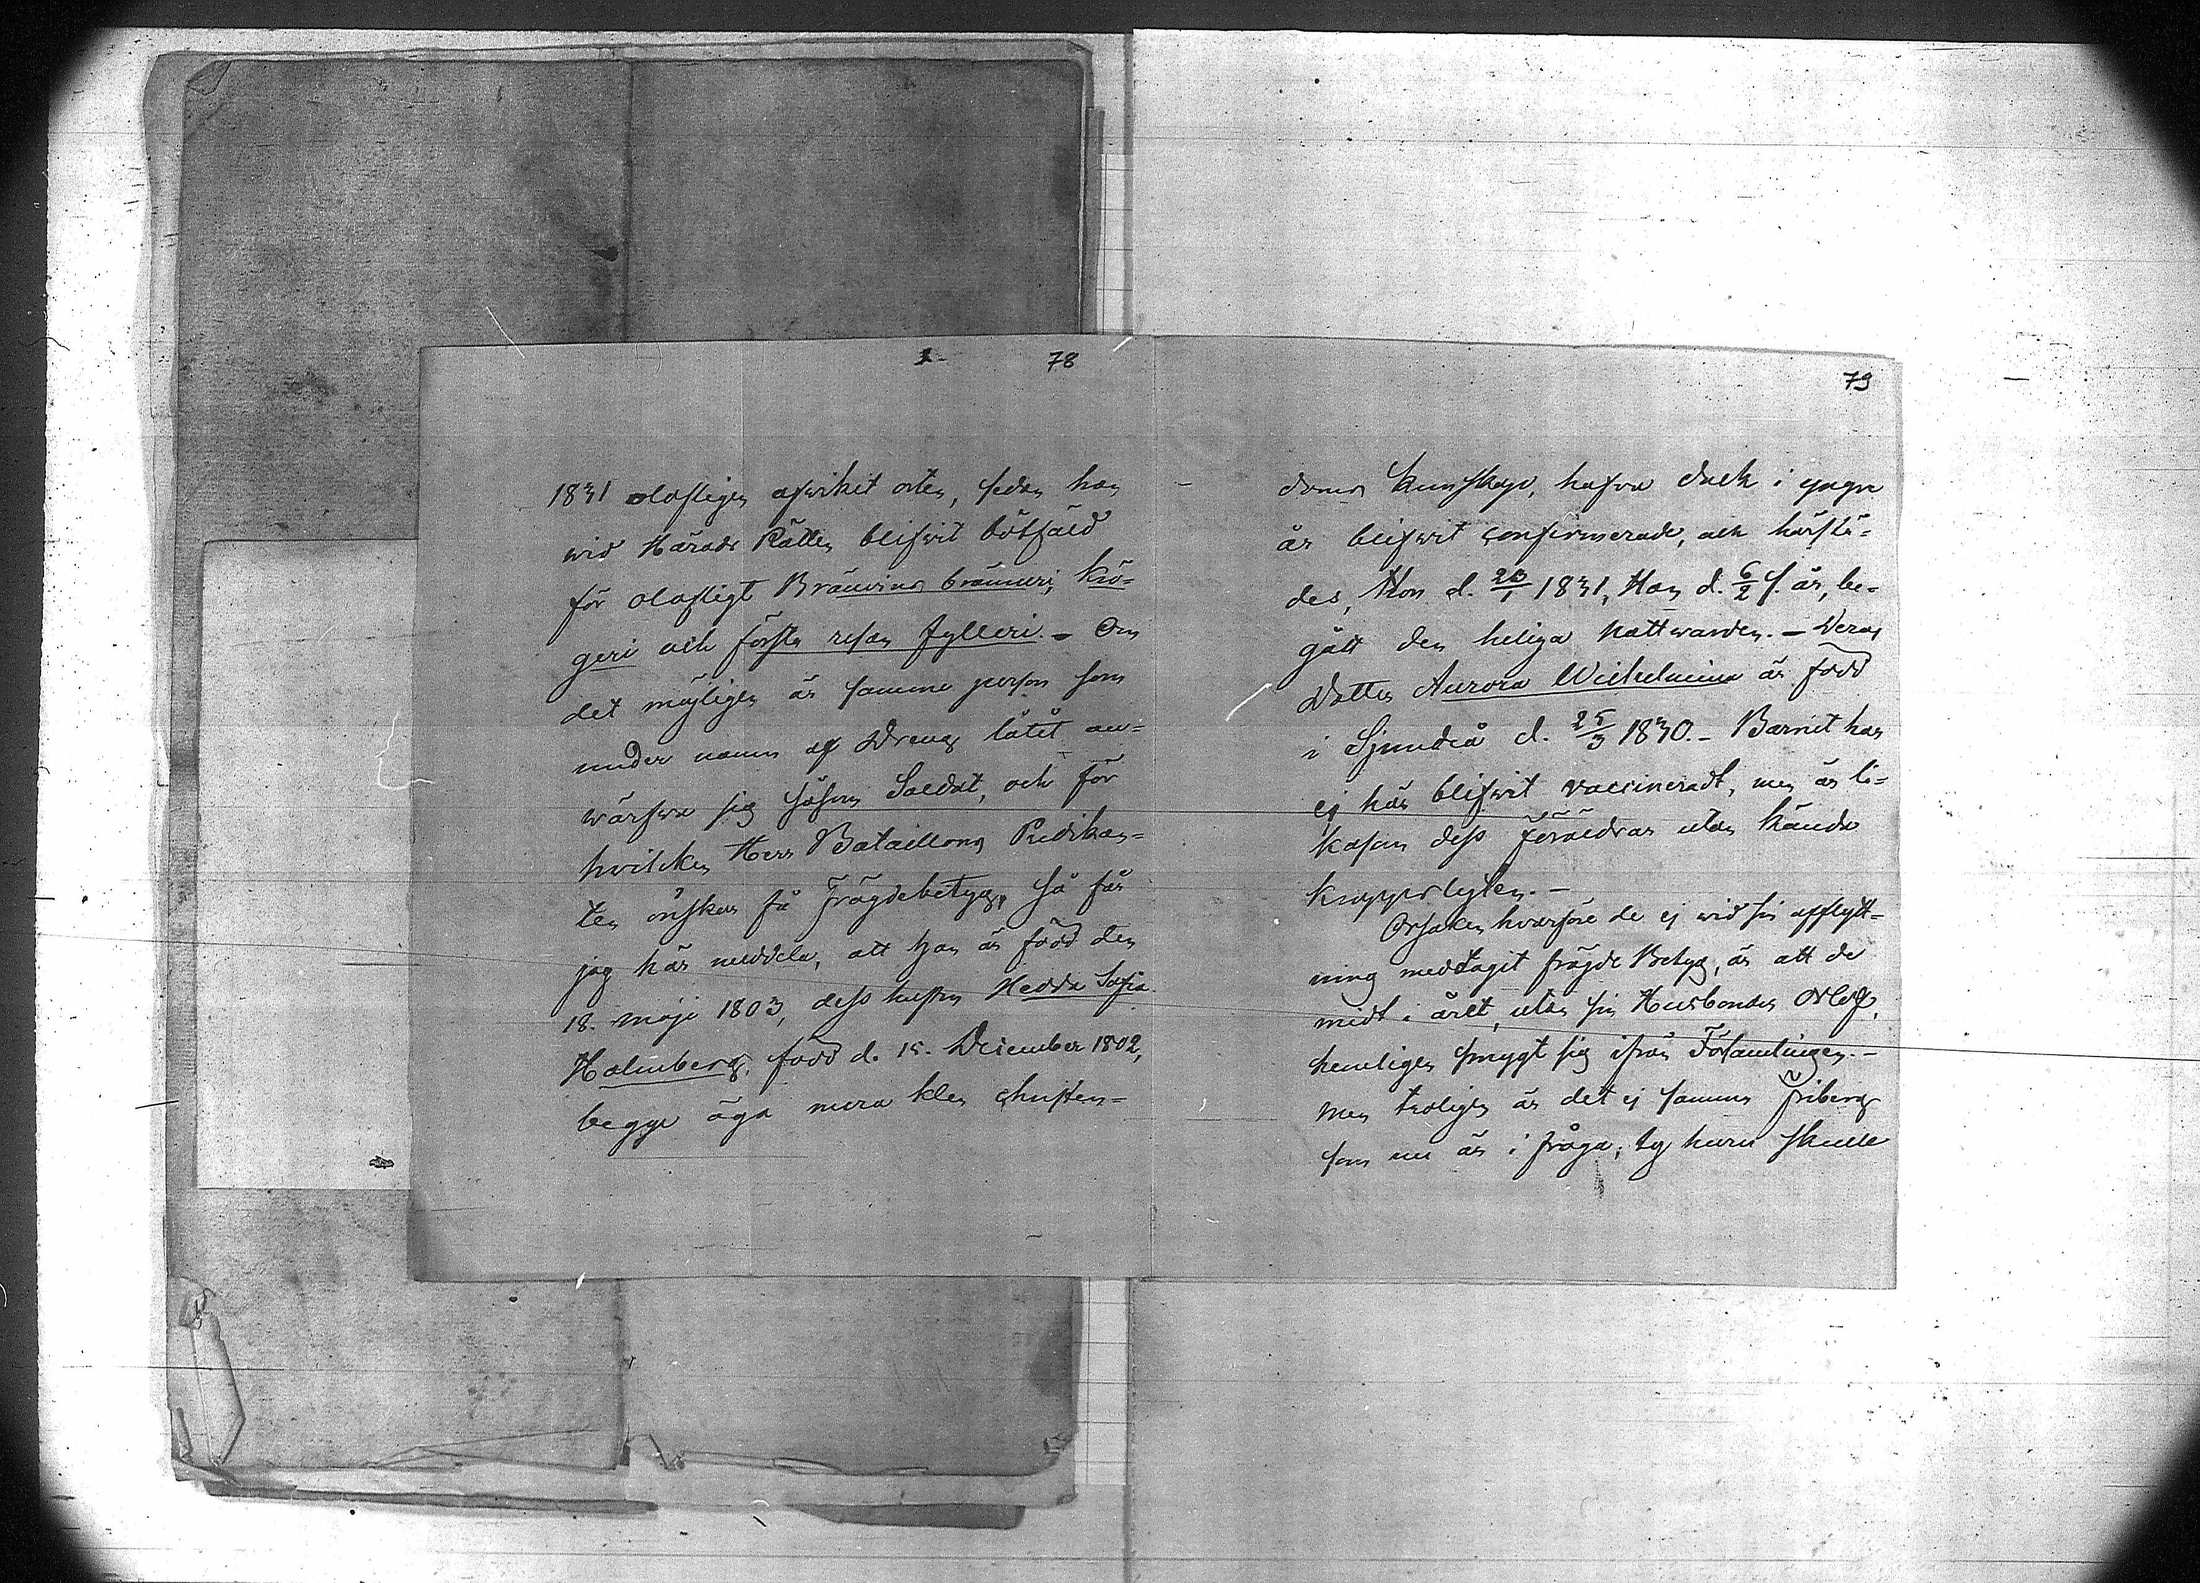 78
1831 olofligen afwikit orten, sedan han
wid Härads Rätten blifvit bötfäld
för olofligt Bränvins bränneri, krö-
geri och första resan fylleri. - Om
det möjligen är samma person som
under namn af Dreng låtit an-
wärfva sig såsom Soldat, och för
hvilcken Herr Bataillons Predikan-
ten önskar få Frägdebetyg, så får
jag här meddela, att han är född den
18. Maji 1803, dess hustru Hedda Sofia
Holmberg, född d. 15. December 1802,
begge äga mera klen christen-
79
doms kunskap, hafva dock i yngre
år blifvit confirmerade, och härstä-
des, Hon d. 23/1 1831, Han d. 6/2 s. år, be-
gått den heliga Nattwarden. - Deras
Dotter Aurora Wilhelmina är född
i Sjundeå d. 25/3 1830. - Barnet har
ej här blifvit vaccineradt, men är li-
kasom dess föräldrar utan kända
kroppslyten. -
Orsaken hvarföre de ej wid sin afflytt-
ning medtagit frägde Betyg, är att de
midt i året, utan sin Husbondes Orlof,
hemligen smygt sig ifrån Församlingen. -
Men troligen är det ej samma Friberg
som nu är i fråga; ty huru skulle